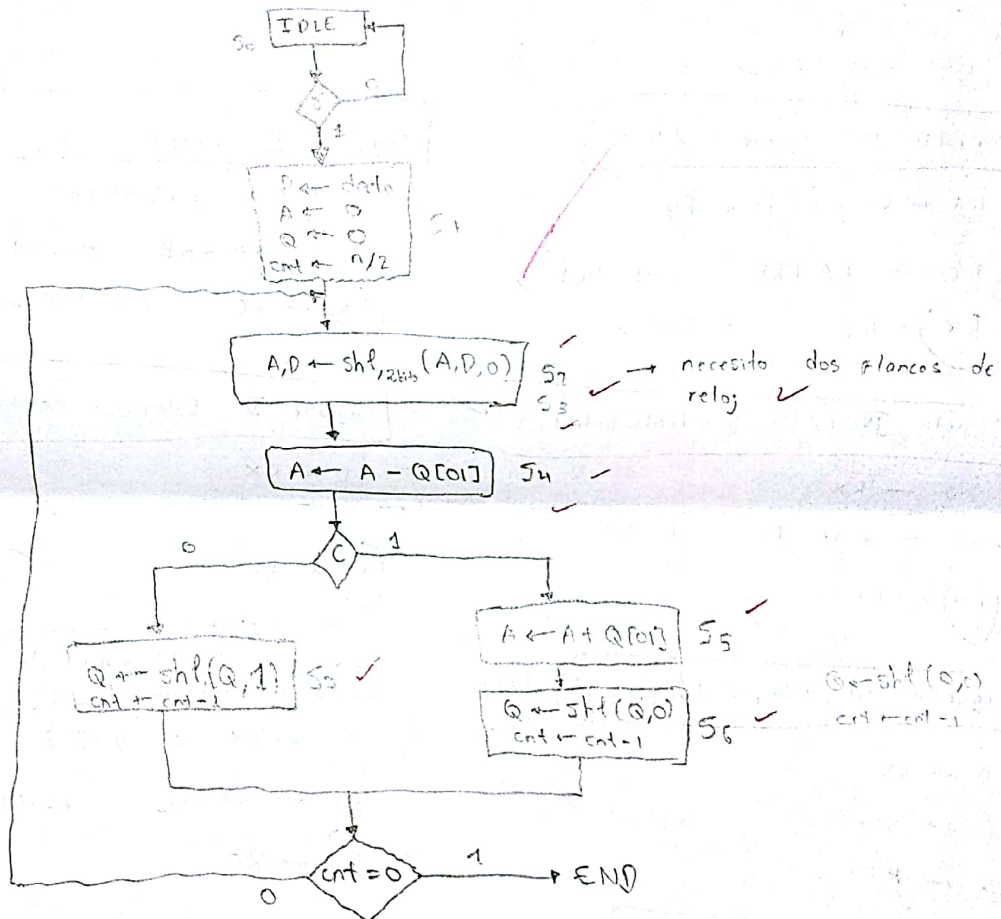 IDLE
S0
0
1
D ← dato
A ← 0
Q ← 0
cnt ← n/2
S1
A,D ← shl,2bits (A,D,0)
S2
S3
→ necesito dos flancos de
reloj
A ← A - Q[01]
S4
0
C
1
A ← A + Q[01]
S5
Q ← shl(Q,1)
cnt ← cnt-1
S5
Q ← shl(Q,0)
cnt ← cnt-1
S6
cnt ← cnt-1
0
cnt = 0
1
END